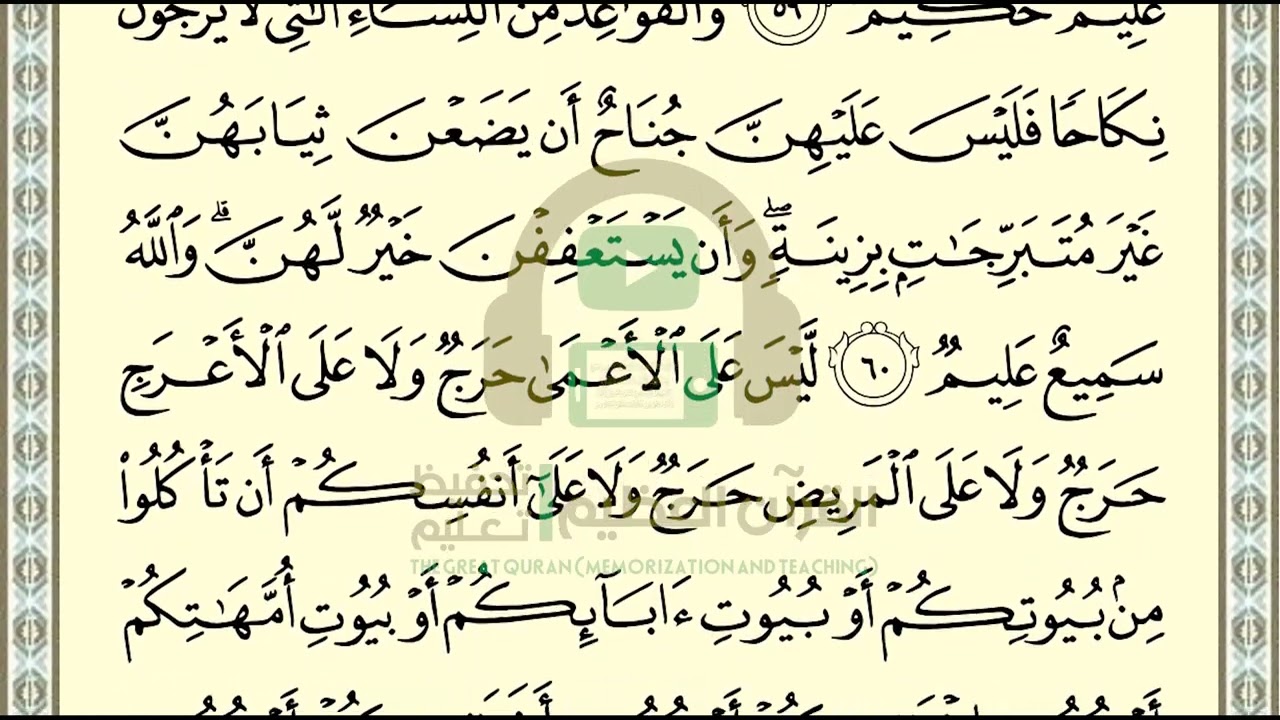 عَلِيمٌ حَكِيمٌ ٥٩ وَالْقَوَاعِدُ مِنَ النِّسَاءِ الَّتِي لَا يَرْجُونَ
نِكَاحًا فَلَيْسَ عَلَيْهِنَّ جُنَاحٌ أَن يَضَعْنَ ثِيَابَهُنَّ
غَيْرَ مُتَبَرِّجَٰتِۭ بِزِينَةٖۖ وَأَن يَسْتَعْفِفْنَ خَيْرٞ لَّهُنَّۗ وَٱللَّهُ
سَمِيعٌ عَلِيمٞ ٦٠ لَّيْسَ عَلَى ٱلْأَعْمَىٰ حَرَجٞ وَلَا عَلَى ٱلْأَعْرَجِ
حَرَجٞ وَلَا عَلَى ٱلْمَرِيضِ حَرَجٞ وَلَا عَلَىٰٓ أَنفُسِكُمْ أَن تَأْكُلُوا۟
القرآن العظيم تحفيظ تعليم
THE GREAT QURAN (MEMORIZATION AND TEACHING)
مِنۢ بُيُوتِكُمْ أَوْ بُيُوتِ ءَابَآئِكُمْ أَوْ بُيُوتِ أُمَّهَٰتِكُمْ